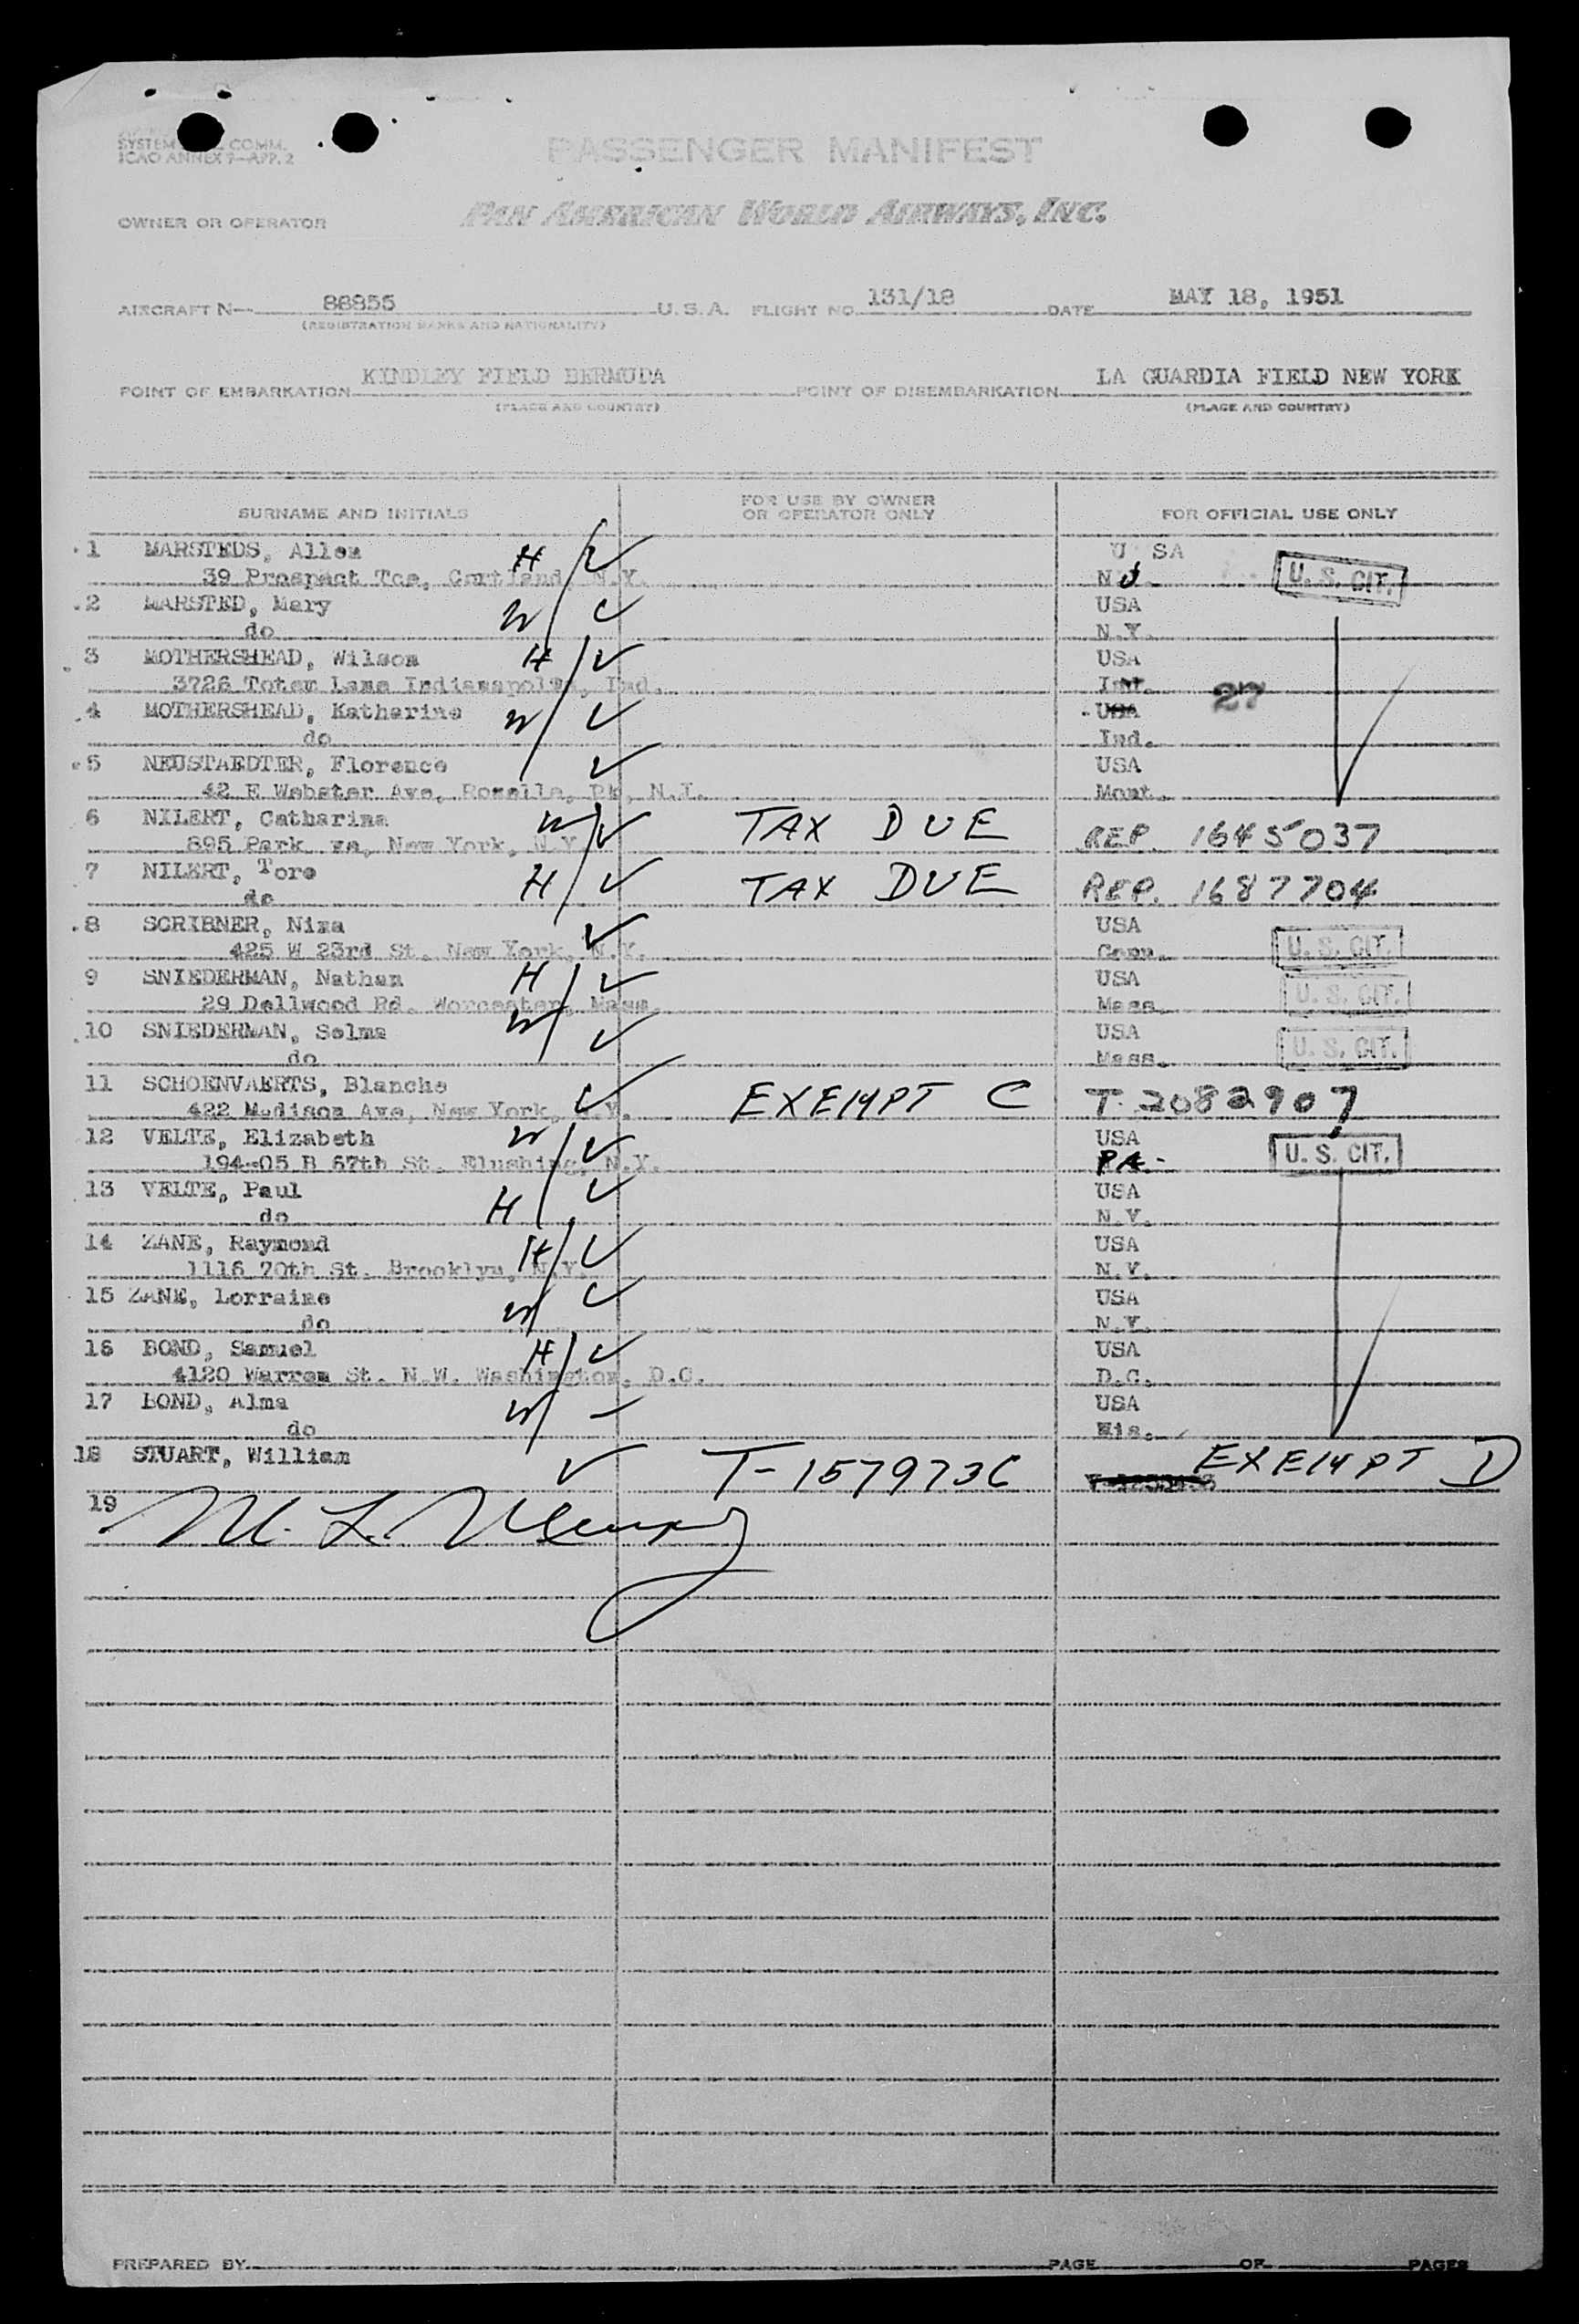 SYSTEM COMM.
ICAO ANNEX 9—APP. 2
PASSENGER MANIFEST
OWNER OR OPERATOR PAN AMERICAN WORLD AIRWAYS, INC.
AIRCRAFT N— 88855 U.S.A. FLIGHT NO. 131/18 DATE MAY 18, 1951
(REGISTRATION MARKS AND NATIONALITY)
POINT OF EMBARKATION KINDLEY FIELD BERMUDA POINT OF DISEMBARKATION LA GUARDIA FIELD NEW YORK
(PLACE AND COUNTRY) (PLACE AND COUNTRY)
SURNAME AND INITIALS FOR USE BY OWNER OR OPERATOR ONLY FOR OFFICIAL USE ONLY
1 MARSTEDS, Allen H / ✓ U SA
39 Prospect Tce, Cortland, N.Y. U. S. CIT.
2 MARSTED, Mary W / ✓ USA
do N.Y.
3 MOTHERSHEAD, Wilson H / ✓ USA
3726 Totem Lane Indianapolis, Ind. Ind. 27
4 MOTHERSHEAD, Katharine W / ✓ USA
do Ind.
5 NEUSTAEDTER, Florence ✓ USA
42 E Webster Ave, Roselle, Pk, N.J. Mont.
6 NILERT, Catharina W / ✓ TAX DUE REP. 1645037
895 Park va, New York, N.Y.
7 NILERT, Tore H / ✓ TAX DUE REP. 1687704
do
8 SCRIBNER, Nina ✓ USA
425 W 23rd St. New York, N.Y. Conn. U. S. CIT.
9 SNIEDERMAN, Nathan H / ✓ USA
29 Dellwood Rd. Worcester, Mass. Mass. U. S. CIT.
10 SNIEDERMAN, Selma W / ✓ USA
do Mass. U. S. CIT.
11 SCHOENVAERTS, Blanche ✓ EXEMPT C T-2082907
422 Madison Ave, New York, N.Y.
12 VELTE, Elizabeth W / ✓ USA
194-05 B 67th St. Flushing, N.Y. PA.- U. S. CIT.
13 VELTE, Paul H / ✓ USA
do N.Y.
14 ZANE, Raymond H / ✓ USA
1116 70th St. Brooklyn, N.Y. N.Y.
15 ZANE, Lorraine W / ✓ USA
do N.Y.
16 BOND, Samuel H / ✓ USA
4120 Warren St. N.W. Washington, D.C. D.C.
17 BOND, Alma W / – USA
do Wis.
18 STUART, William ✓ T-1579736 EXEMPT D
19
M. L.
PREPARED BY PAGE OF PAGES